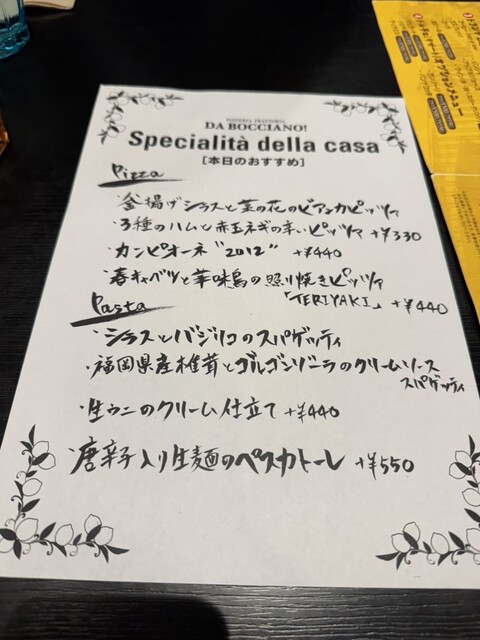 PIZZERIA TRATTORIA
DA BOCCIANO!
Specialità della casa
[本日のおすすめ]
Pizza
・釜揚げシラスと菜の花のビアンカピッツァ
・3種のハムと赤玉ネギの辛いピッツァ +¥330
・カンピオーネ"2012" +¥440
・春キャベツと華味鳥の照り焼きピッツァ
「TERIYAKI」 +¥440
Pasta
・シラスとバジリコのスパゲッティ
・福岡県産椎茸とゴルゴンゾーラのクリームソース
スパゲッティ
・生ウニのクリーム仕立て +¥440
・唐辛子入り生麺のペスカトーレ +¥550